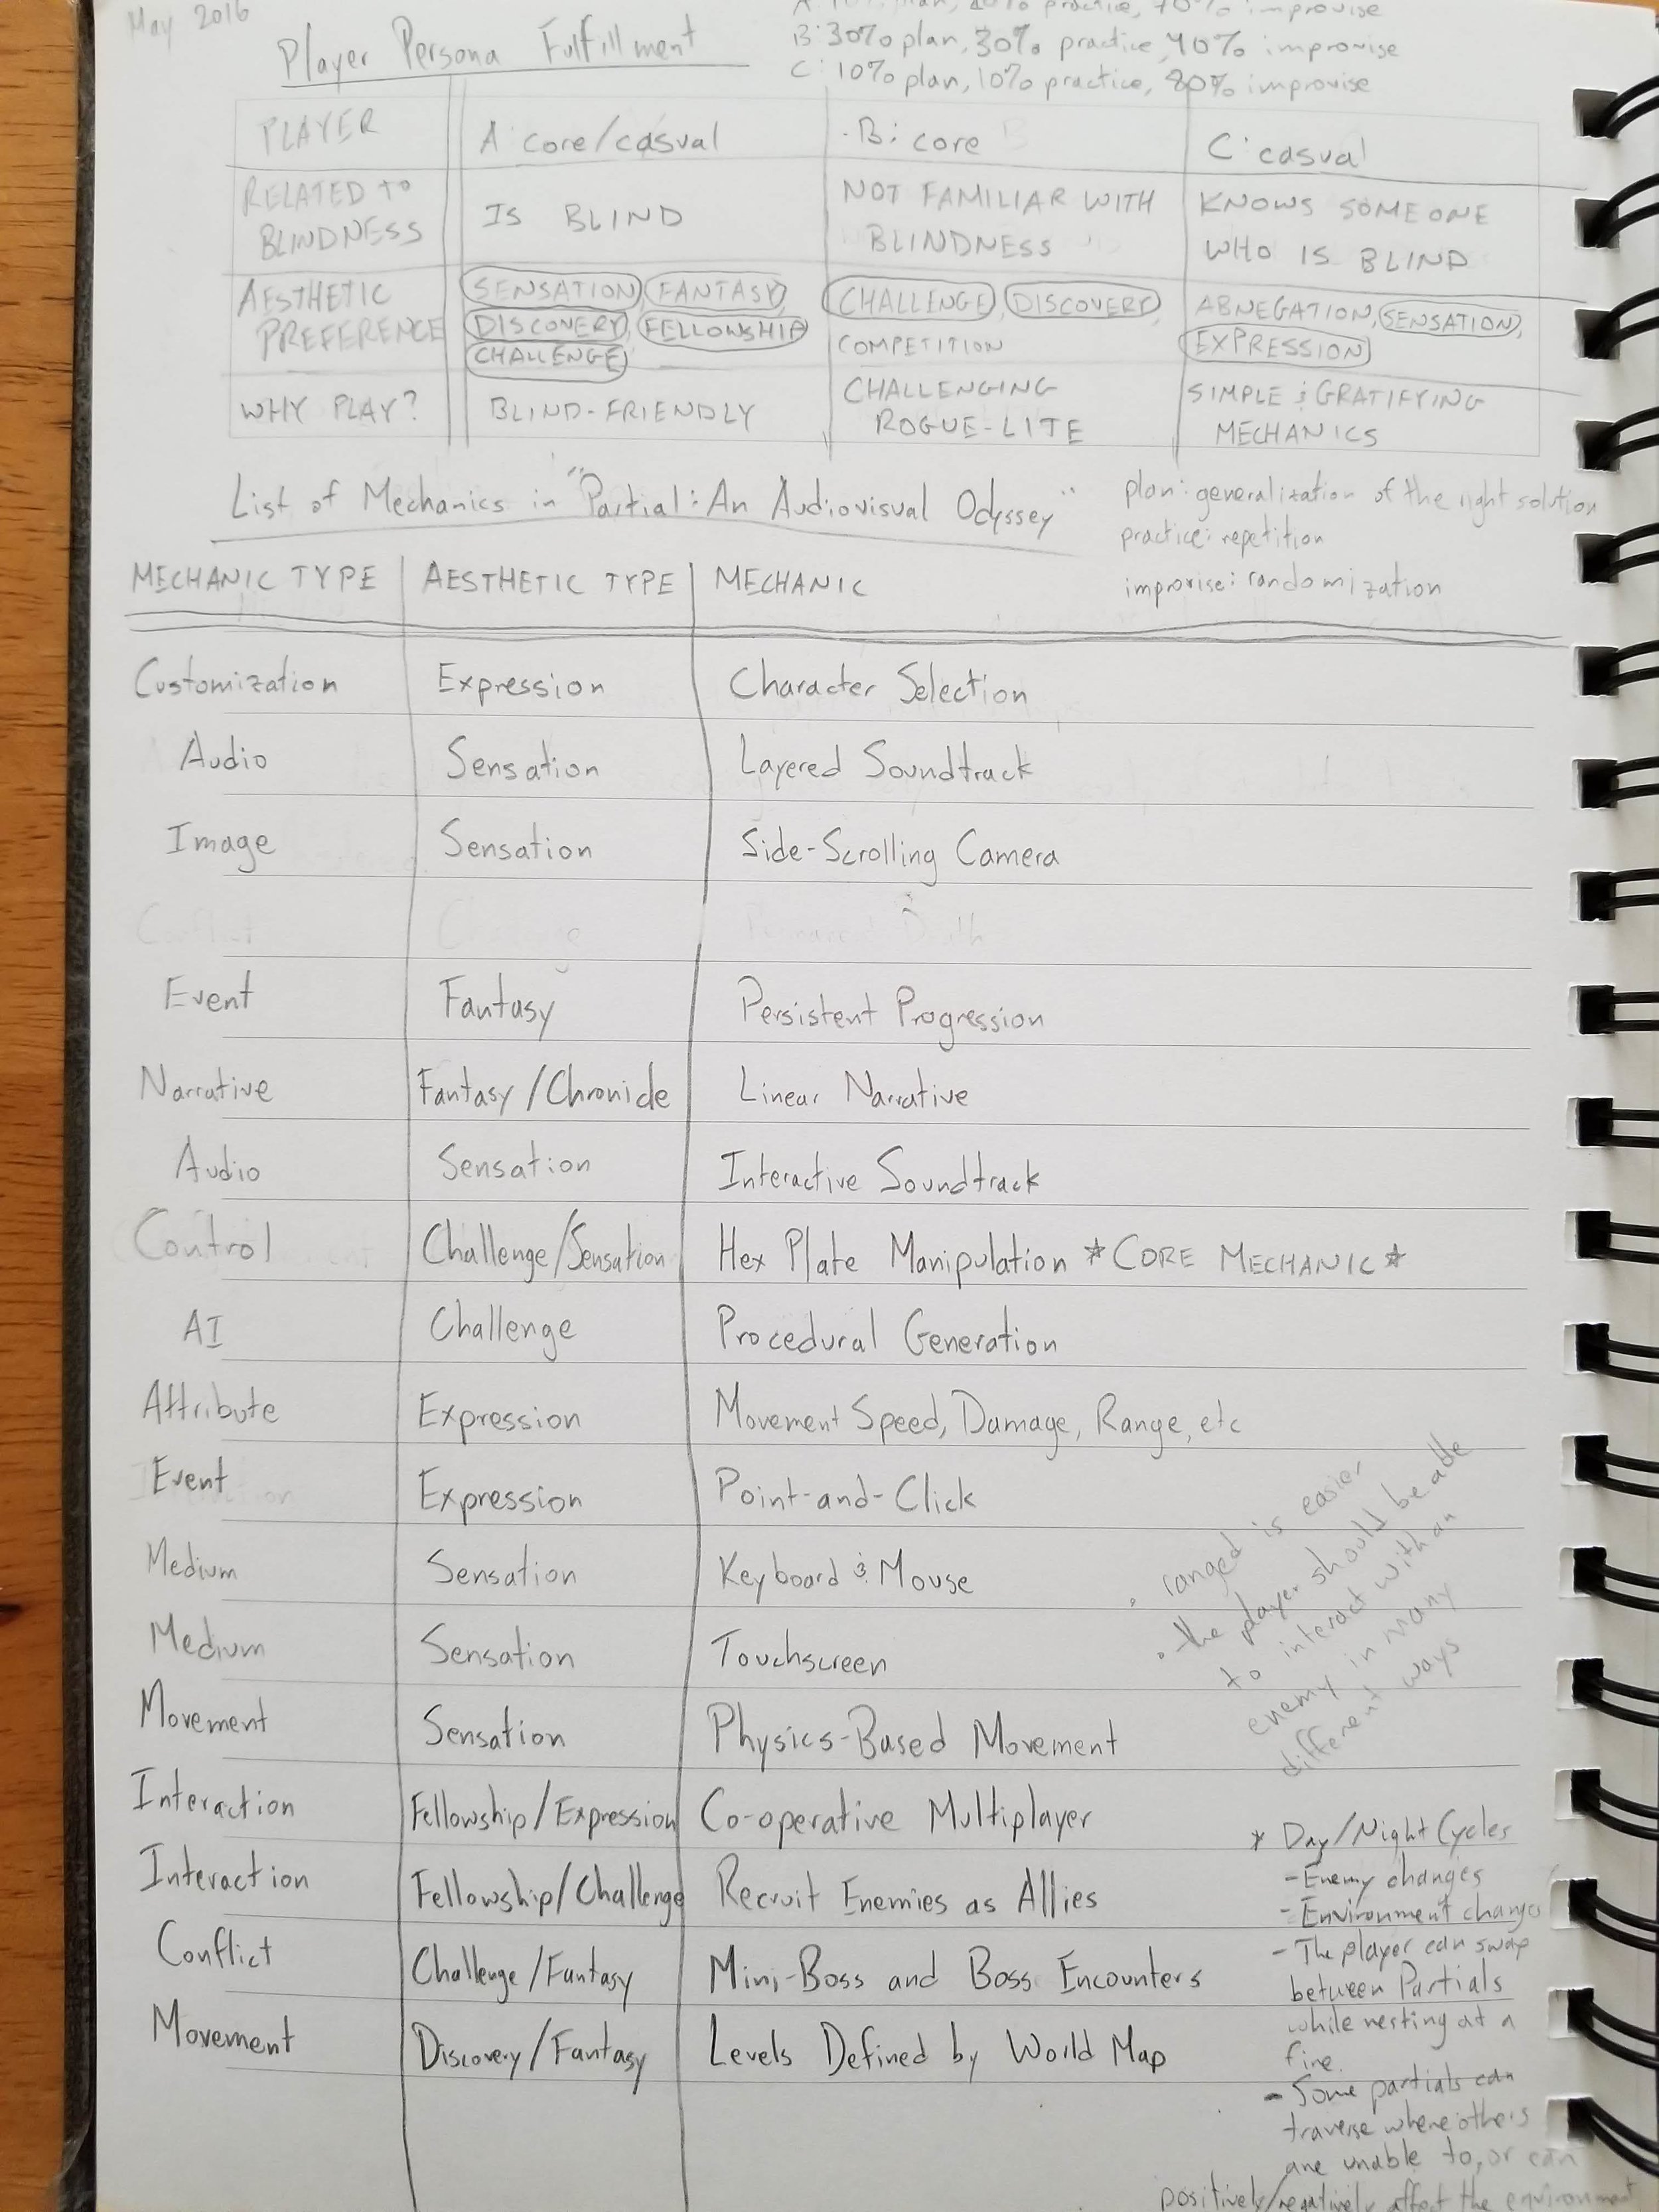 May 2016
Player Persona Fulfillment
practice, improvise
B: 30% plan, 30% practice, 40% improvise
C: 10% plan, 10% practice, 80% improvise
PLAYER A: core/casual B: core C: casual
RELATED TO BLINDNESS IS BLIND NOT FAMILIAR WITH BLINDNESS KNOWS SOMEONE WHO IS BLIND
AESTHETIC PREFERENCE SENSATION, FANTASY, DISCOVERY, FELLOWSHIP CHALLENGE CHALLENGE, DISCOVERY, COMPETITION ABNEGATION, SENSATION, EXPRESSION
WHY PLAY? BLIND-FRIENDLY CHALLENGING ROGUE-LITE SIMPLE & GRATIFYING MECHANICS
List of Mechanics in "Partial: An Audiovisual Odyssey"
plan: generalization of the right solution
practice: repetition
improvise: randomization
MECHANIC TYPE AESTHETIC TYPE MECHANIC
Customization Expression Character Selection
Audio Sensation Layered Soundtrack
Image Sensation Side-Scrolling Camera
Event Fantasy Persistent Progression
Narrative Fantasy/Chronicle Linear Narrative
Audio Sensation Interactive Soundtrack
Control Challenge/Sensation Hex Plate Manipulation *CORE MECHANIC*
AI Challenge Procedural Generation
Attribute Expression Movement Speed, Damage, Range, etc
Event Expression Point-and-Click
Medium Sensation Keyboard & Mouse
Medium Sensation Touchscreen
Movement Sensation Physics-Based Movement
Interaction Fellowship/Expression Co-operative Multiplayer
Interaction Fellowship/Challenge Recruit Enemies as Allies
Conflict Challenge/Fantasy Mini-Boss and Boss Encounters
Movement Discovery/Fantasy Levels Defined by World Map
• ranged is easier
• the player should be able
to interact with an
enemy in many
different ways
* Day/Night Cycles
- Enemy changes
- Environment changes
- The player can swap
between Partials
while resting at a
fire.
- Some partials can
traverse where others
are unable to, or can
positively/negatively affect the environment